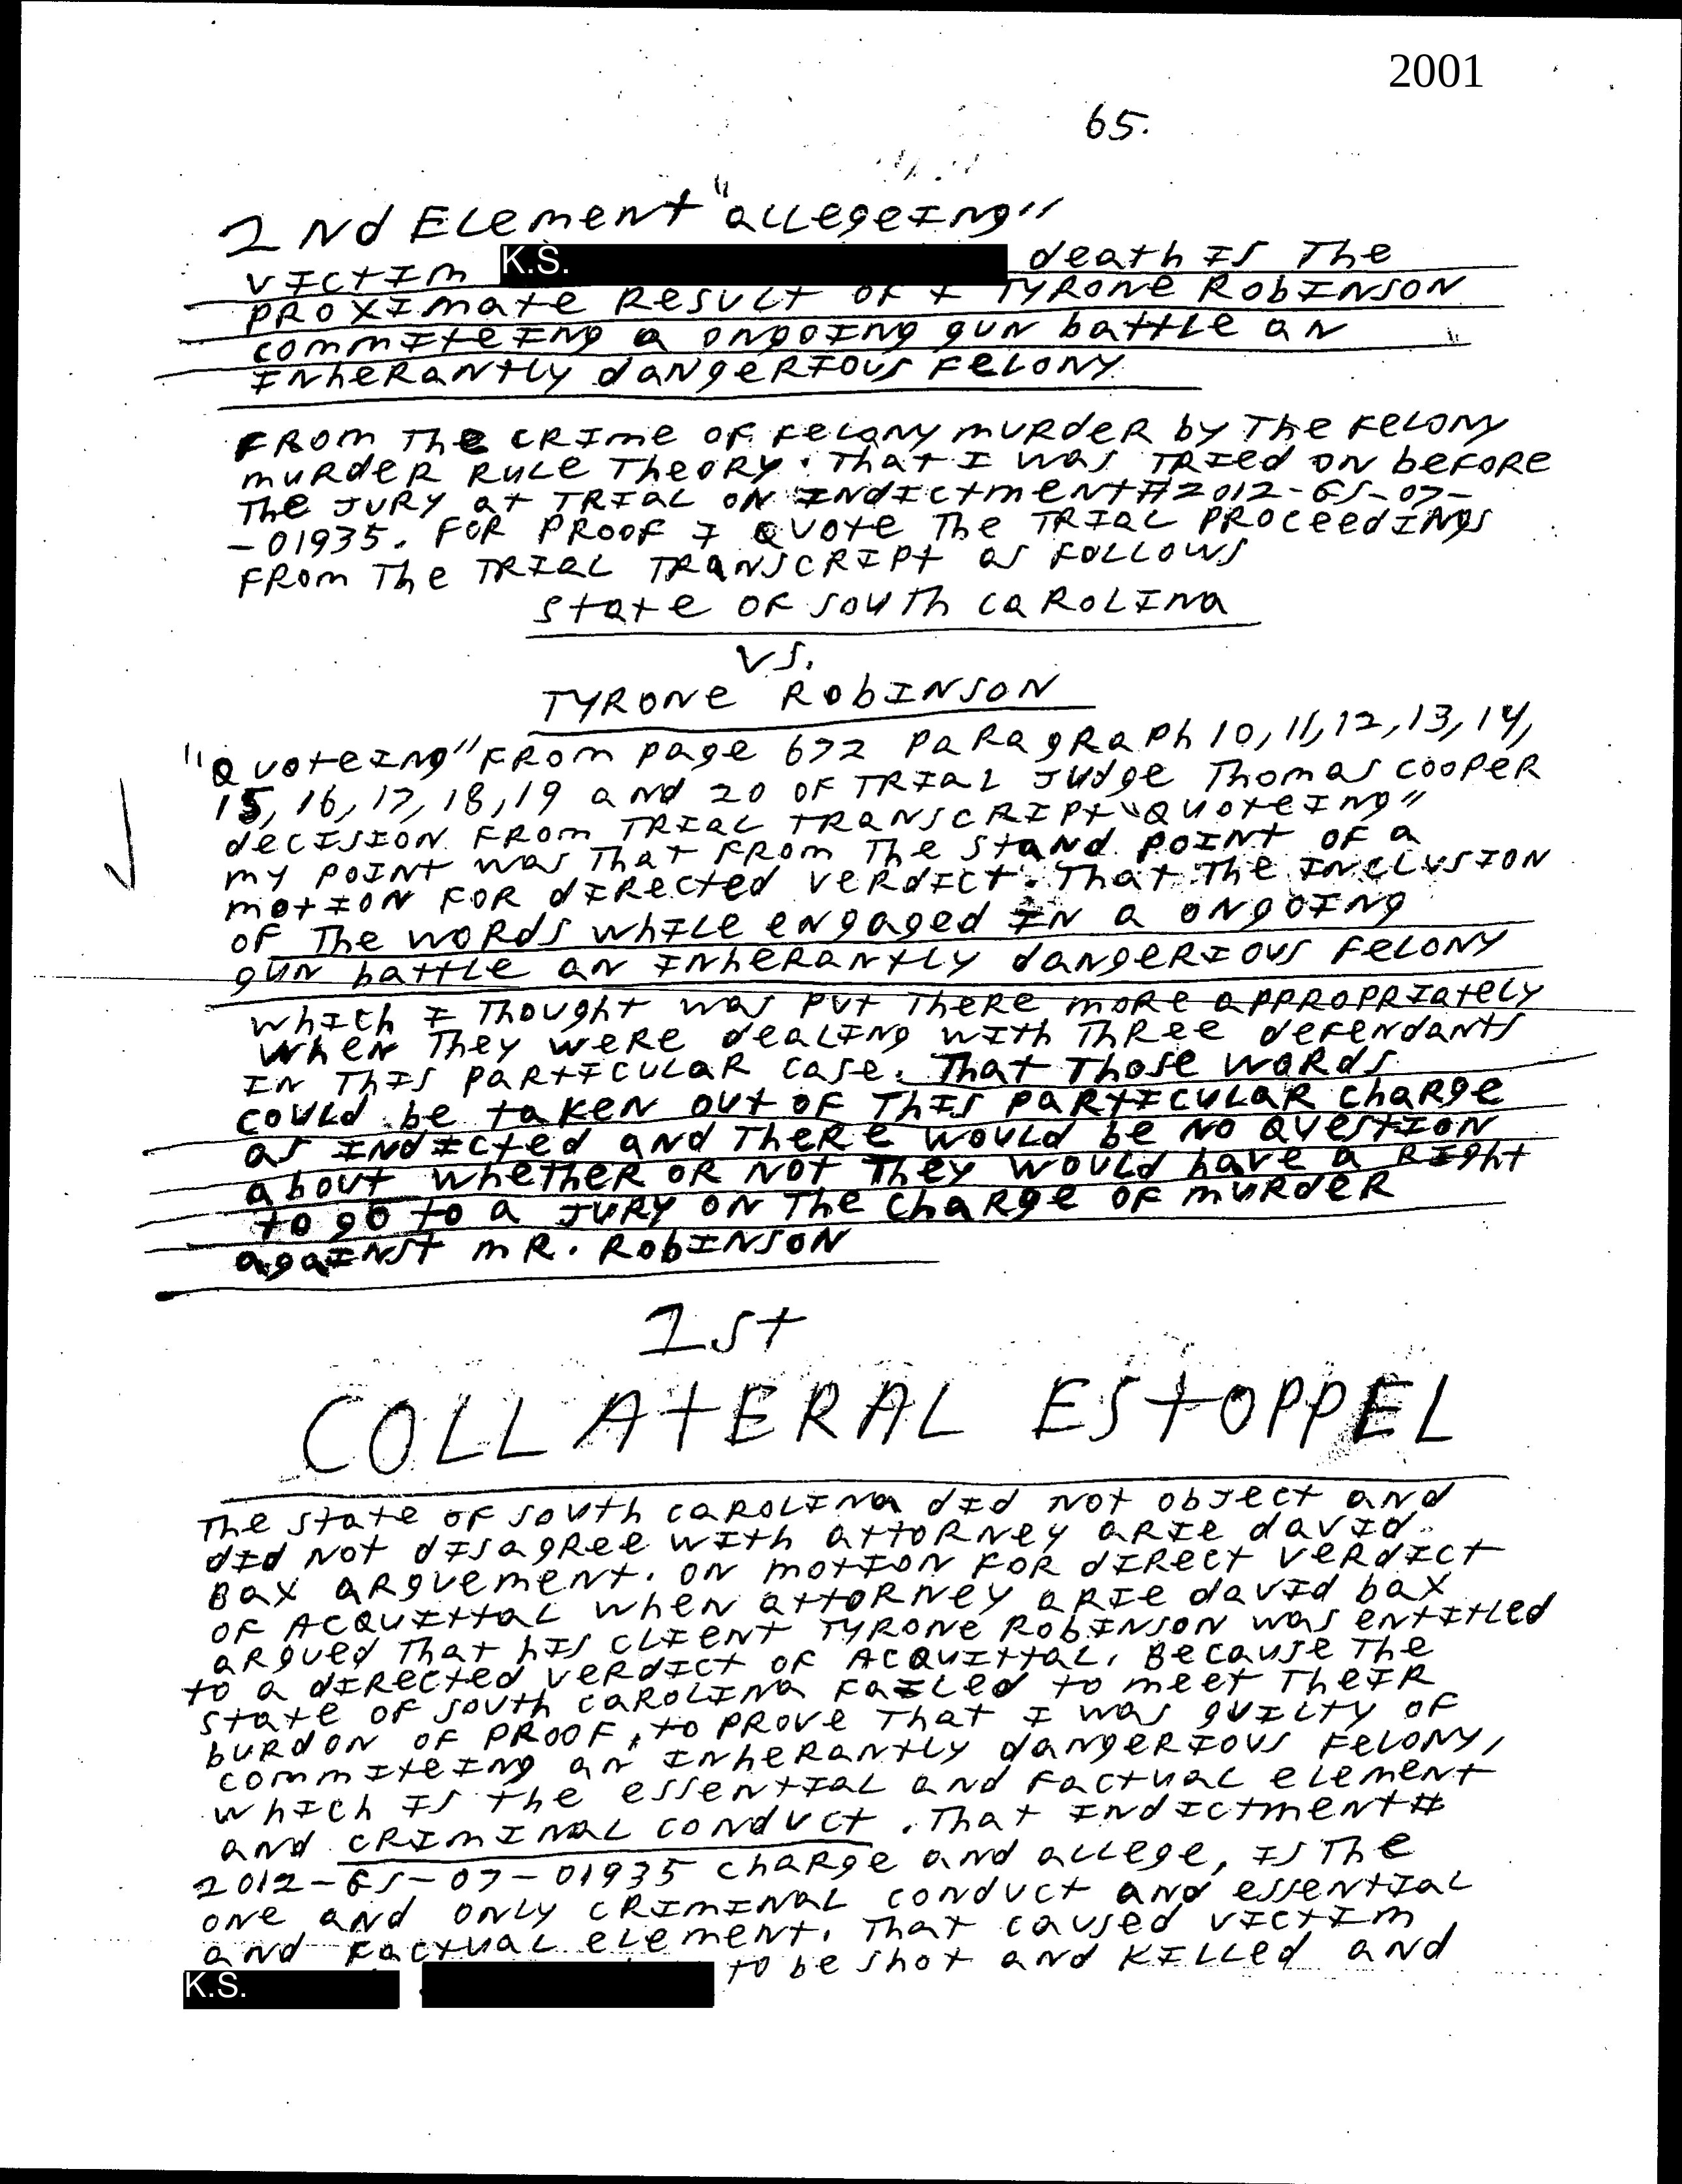 2001
65.
2Nd Element "allegeing"
victim K.S. death is the
proximate result of I Tyrone Robinson
commiteing a ongoing gun battle an
inherantly dangerious felony
From the crime of felony murder by the felony
murder rule theory. That I was tried on before
the jury at trial on indictment#2012-GS-07-
-01935. For proof I quote the trial proceedings
from the trial transcript as follows
State of South Carolina
vs.
Tyrone Robinson
"Quoteing" from page 672 paragraph 10, 11, 12, 13, 14,
15, 16, 17, 18, 19 and 20 of trial judge Thomas Cooper
decision from trial transcript "quoteing"
my point was that from the stand point of a
motion for directed verdict. That the inclusion
of the words while engaged in a ongoing
gun battle an inherantly dangerious felony
which I thought was put there more appropriately
when they were dealing with three defendants
in this particular case. That those words
could be taken out of this particular charge
as indicted and there would be no question
about whether or not they would have a right
to go to a jury on the charge of murder
against Mr. Robinson
1st
COLLATERAL ESTOPPEL
The State of South Carolina did not object and
did not disagree with attorney Arie David
Bax arguement. On motion for direct verdict
of acquittal when attorney Arie David Bax
argued that his client Tyrone Robinson was entitled
to a directed verdict of acquittal. Because the
State of South Carolina failed to meet their
burdon of proof, to prove that I was guilty of
commiteing an inherantly dangerious felony,
which is the essential and factual element
and criminal conduct. That indictment#
2012-GS-07-01935 charge and allege, is the
one and only criminal conduct and essential
and factual element. That caused victim
K.S. to be shot and killed and